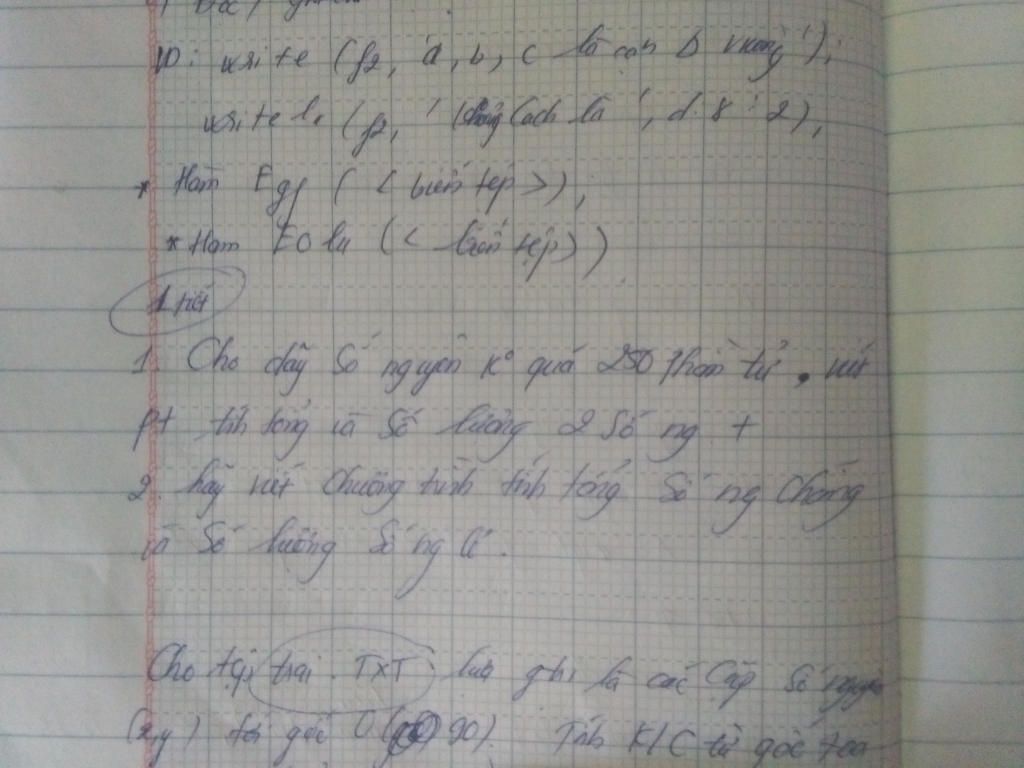 VD: write (f2, 'a, b, c là cạnh D vuông');
writeln (f2, ' Khoảng cách là ', d:8:2);
* Hàm Eof (<biến tệp>);
* Hàm EOln (<biến tệp>)
1 tiết
1. Cho dãy số nguyên k° quá 250 phần tử. viết
pt tính tổng và số lượng 2 số ng +
2. hãy viết chương trình tính tổng số ng chẵng
và số lượng số ng lẻ.
Cho tệp trai.TXT lưu ghi là các cặp số nguyên
(x,y) tới gốc O 90). Tính K/C từ gốc toạ